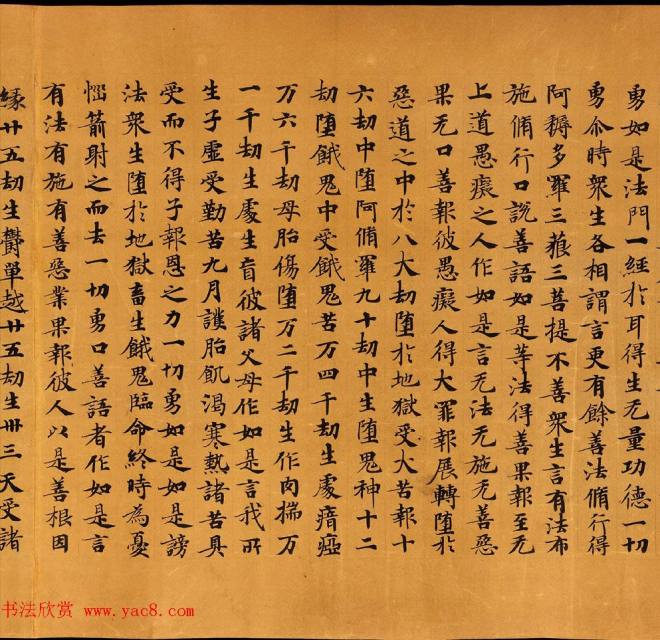 勇如是法門一經於耳得生无量功德一切
勇尒時衆生各相謂言更有餘善法脩行得
阿耨多羅三藐三菩提不善衆生言有法布
施脩行口說善語如是等法得善果報至无
上道愚癡之人作如是言无法无施无善惡
果无口善報彼愚癡人得大罪報展轉堕於
惡道之中於八大劫堕於地獄受大苦報十
六劫中堕阿脩羅九十劫中生堕鬼神十二
劫堕餓鬼中受餓鬼苦万四千劫生處瘖瘂
万六千劫母胎傷堕万二千劫生作肉揣万
一千劫生處生盲彼諸父母作如是言我所
生子虛受勤苦九月護胎飢渴寒熱諸苦具
受而不得子報恩之力一切勇如是如是謗
法衆生堕於地獄畜生餓鬼臨命終時為憂
惱箭射之而去一切勇口善語者作如是言
有法有施有善惡業果報彼人以是善根因
緣廿五劫生欝單越廿五劫生卅三天受諸
书法欣赏 www.yac8.com